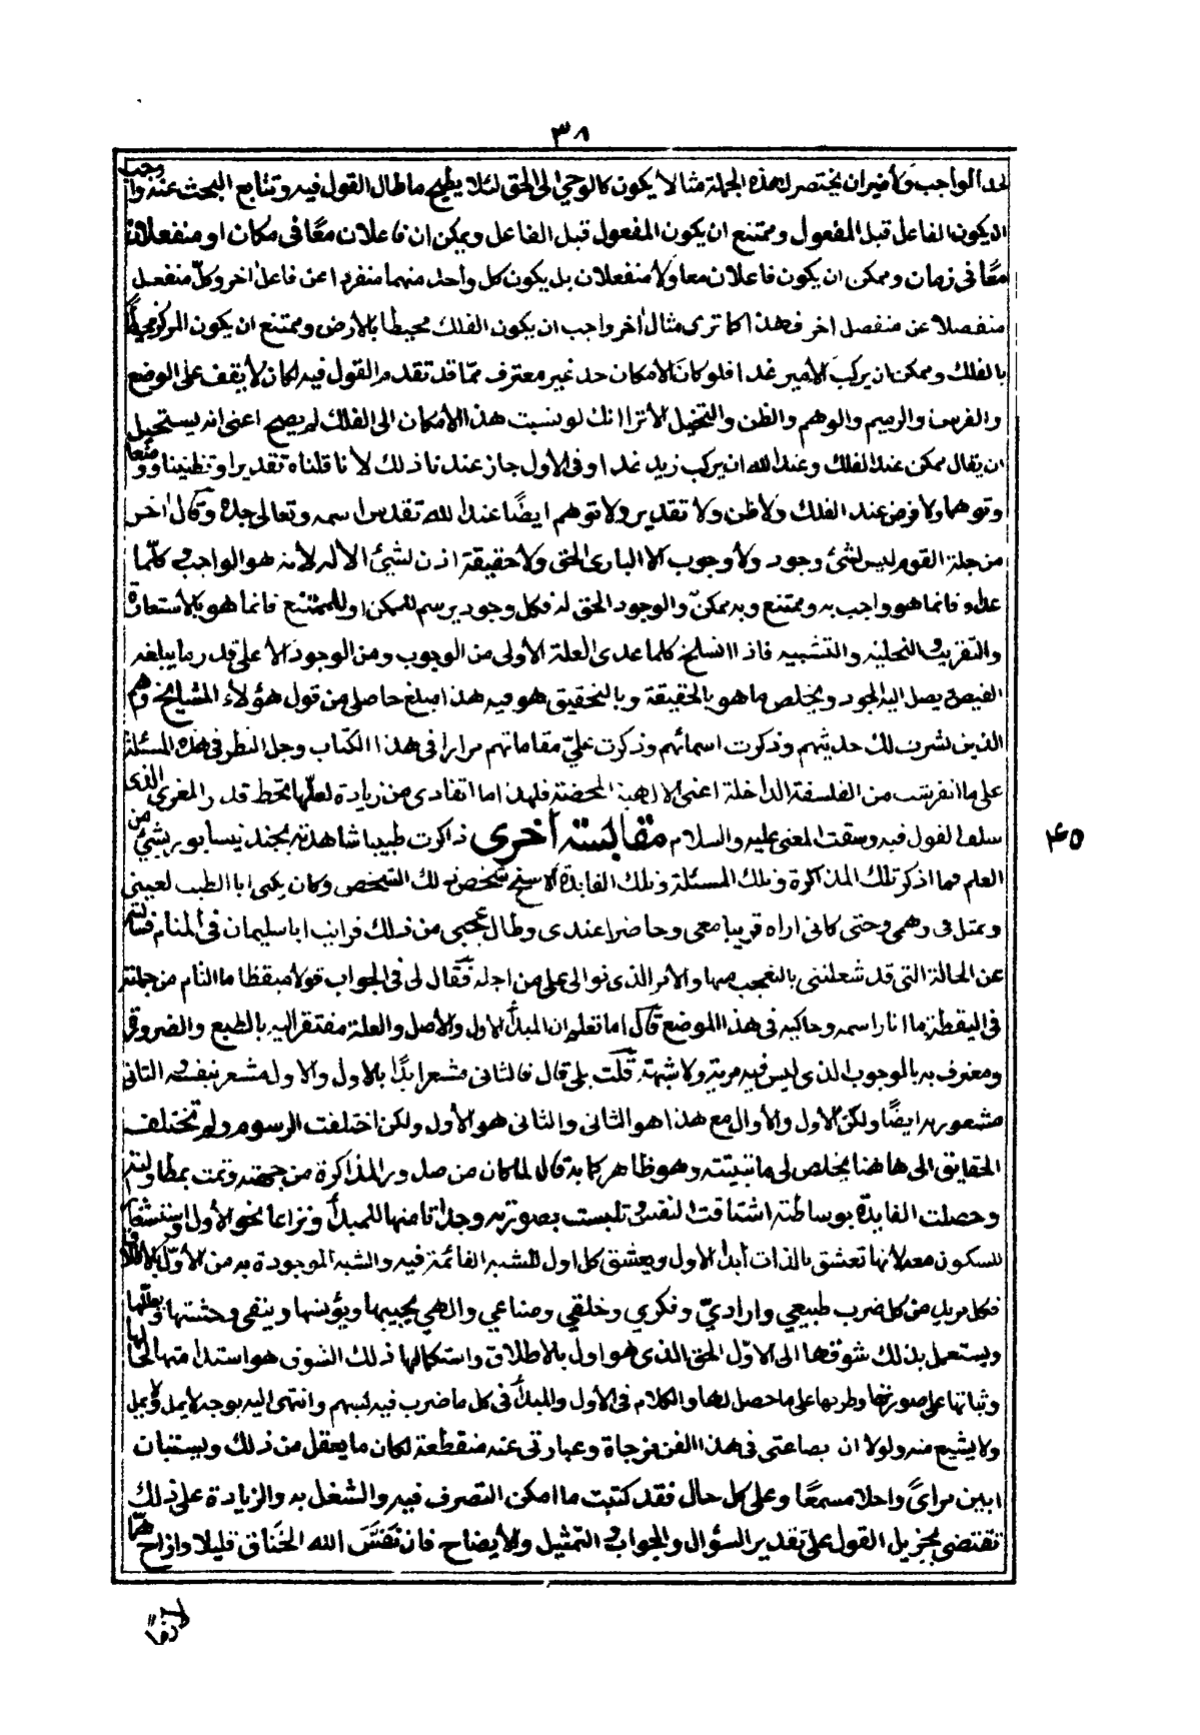 ٣٨
لحد الواجب ولا ضير ان يختصر لهذه الجملة مثالا يكون كالوحي الى الحق لئلا يطيح ما طال القول فيه وتتابع البحث عنه واجب
ان يكون الفاعل قبل المفعول وممتنع ان يكون المفعول قبل الفاعل ويمكن ان فاعلان معًا فى مكان او منفعلان
معًا فى زمان وممكن ان يكون فاعلان معا ولا منفعلان بل يكون كل واحد منهما منفردا عن فاعل اخر وكلّ منفعل
منفصلا عن منفصل اخر فهذا كما ترى مثال اخر واجب ان يكون الفلك محيطا بالارض وممتنع ان يكون المركز محيطًا
بالفلك وممكن ان يركب الأمير غدا فلو كان الامكان حد غير معترف ممّا قد تقدم القول فيه لكان لا يقف على الوضع
والفرض والرسم والوهم والظن والتخيل الا ترا انك لو نسبت هذا الامكان الى الفلك لم يصح اعنى انه يستحيل
ان يقال ممكن عند الفلك وعند الله ان يركب زيد غدا وفى الاول جاز عندنا ذلك لانا قلناه تقديرا وتظنينا ووضعا
وتوهما ولا فرض عند الفلك ولا ظن ولا تقدير ولا توهم ايضًا عند الله تقدس اسمه وتعالى جده وقال اخر
من جلة القوم ليس لشئ وجود ولا وجوب الا البارئ الحق ولا حقيقة اذن لشيئ الا له لانه هو الواجب وكلّما
عداه فانما هو واجب به وممتنع وبه ممكن والوجود الحق له فكل وجود يرسم للممكن او للممتنع فانما هو بالاستعارة
والتقريب والتحلية والتشبيه فاذا انسلخ كلما عدى العلة الاولى من الوجوب ومن الوجود الا على قدر ما يبلغه
الفيض يصل اليه الجود ويخلص ما هو بالحقيقة وبالتحقيق هو فيه هذا مبلغ حاصلى من قول هؤلاء المشايخ وهم
الذين نشرت لك حديثهم وذكرت اسمائهم وذكرت علىّ مقاماتهم مرارا فى هذا الكتاب وجل النظر فى هذه المسئلة
على ما انفريت من الفلسفة الداخلة اعنى الالهية المحضة فلهذا ما اتفادى من زيادة لعلّها تحط قدر المغزى الذى
سلف القول فيه وسقت المعنى عليه والسلام مقابسة أخرى ذاكرت طبيبا شاهدته بجند نيسابور بشئ من
٤٥
العلم فما اذكر تلك المذاكرة وتلك المسئلة وتلك الفايدة الا سنح شخص ذلك الشخص وكان يكنى ابا الطيب لعينى
وتمثل فى وهمى وحتى كانى اراه قريبا معى وحاضرا عندى وطال عجبى من ذلك فرايت ابا سليمان فى المنام فسألته
عن الحالة التى قد شغلتنى بالتعجب منها والامر الذى توالى على من اجله فقال لى فى الجواب قولا متيقظا ما النام من جملته
فى اليقظة ما انا راسمه وحاكيه فى هذا الموضع قال اما تعلم ان المبدأ الاول والاصل والعلة مفتقر اليه بالطبع والضرورة
ومعترف به بالوجوب الذى ليس فيه مرية ولا شبهة قلت بلى قال فالثانى مشعر ابدًا بالاول والاول مشعر بنفسه الثانى
مشعور به ايضًا ولكن الاول والاوال مع هذا هو الثانى والثانى هو الاول ولكن اختلفت الرسوم ولم تختلف
الحقايق الى هاهنا يخلص لى ما تبينته وهو ظاهر كما به قال لما كان من صدور المذاكرة من جهته وتمت بمطاولته
وحصلت الفايدة بوساطته اشتاقت النفس وتلبست بصورته وجدانا منها للمبدأ ونزاعا نحو الأول واستشعارا
للسكون معه لانها تعشق بالذات ابدا الاول ويعشق كل اول للشبه القائمة فيه والشبه الموجودة به من الأوّل بالاطلاق
فكل مريد من كل ضرب طبيعي واراديّ وفكري وخلقي وصناعي والهي يجيبها ويؤنسها وينفى وحشتها ويعللها
ويستعمل بذلك شوقها الى الاوّل الحق الذى هو اول بالاطلاق واستكمالها ذلك الشوق هو استدامتها لحالها
وثباتها على صورتها وطربها على ما حصل لها والكلام فى الاول والمبدأ فى كل ما ضرب فيه لبهم وانتهى اليه بوجه لا يمل ولا يمل
ولا يشبع منه ولولا ان بضاعتى فى هذا الفن مزجاة وعبارتى عنه منقطعة لكان ما يعقل من ذلك ويستنبات
ابين مراىً واحلا مسمعًا وعلى كل حال فقد كتبت ما امكن التصرف فيه والشغل به والزيادة على ذلك
تقتضى تجزيل القول على تقدير السؤال والجواب والتمثيل والايضاح فان نفّس الله الخناق قليلا وازاح همّا
لازمًا